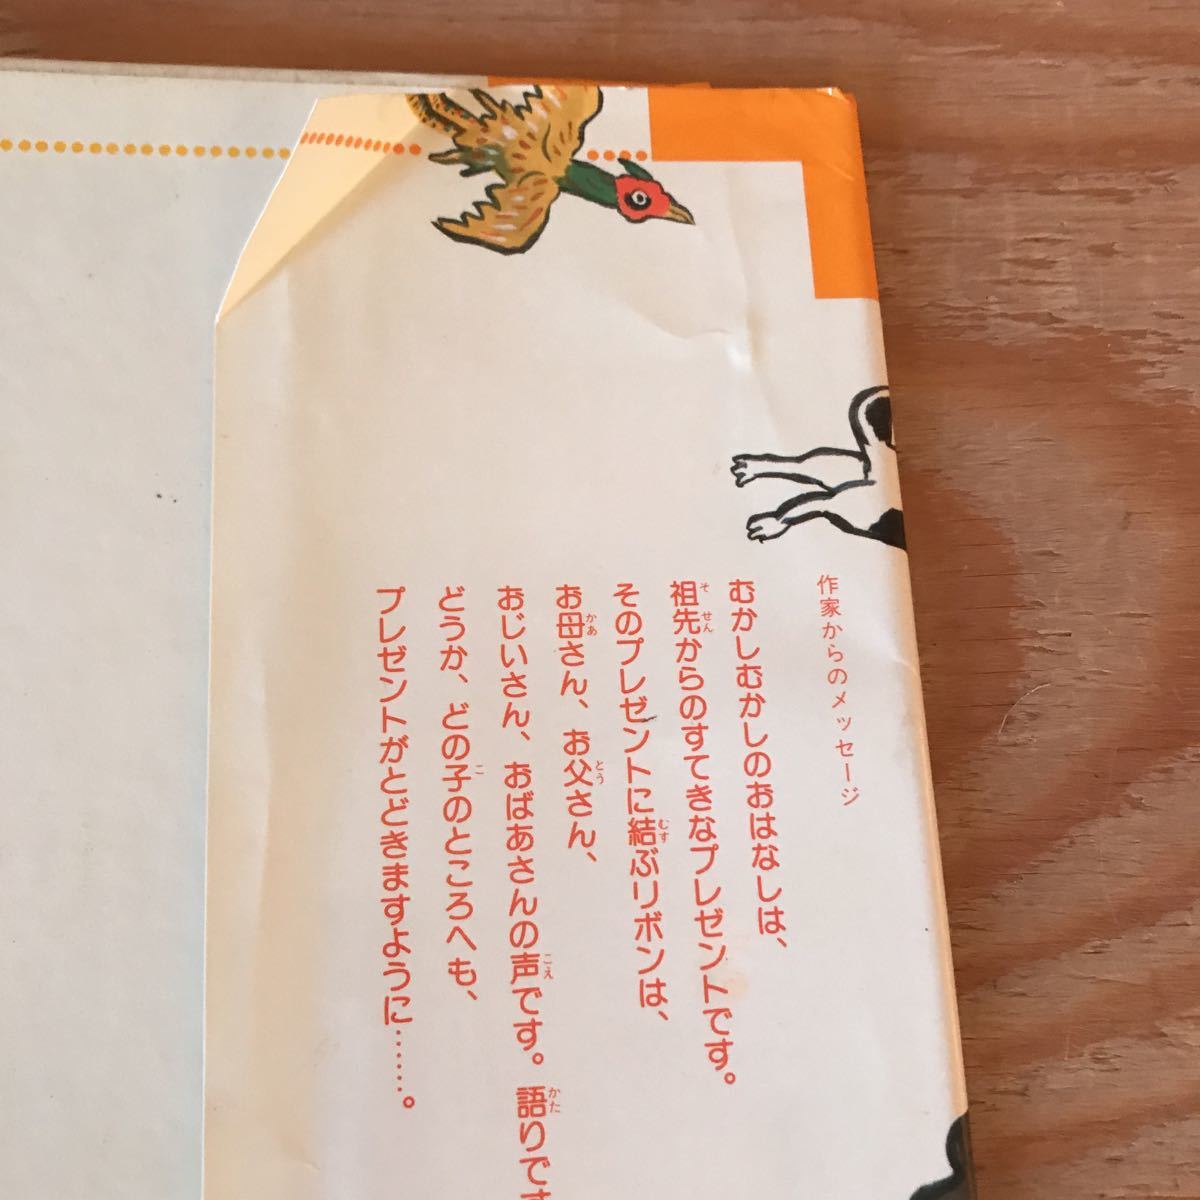 作家からのメッセージ
むかしむかしのおはなしは、
祖先からのすてきなプレゼントです。
そのプレゼントに結ぶリボンは、
お母さん、お父さん、
おじいさん、おばあさんの声です。語りです
どうか、どの子のところへも、
プレゼントがとどきますように……。